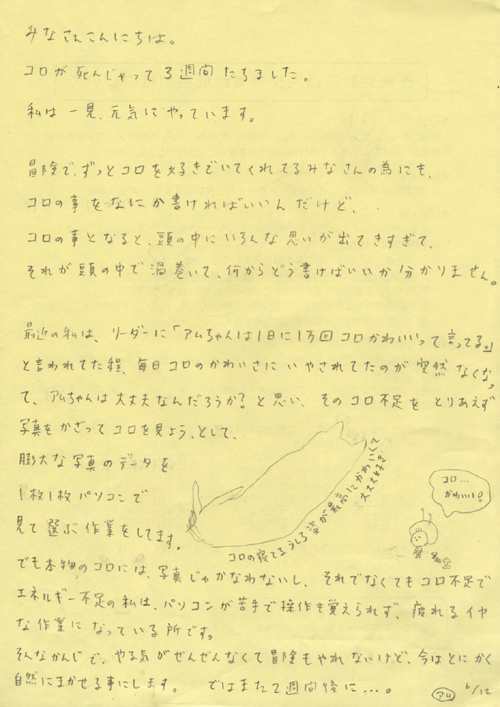 みなさんこんにちは。
コロが死んじゃって3週間たちました。
私は一見、元気にやっています。
冒険で、ずっとコロを好きでいてくれてるみなさんの為にも、
コロの事をなにか書ければいいんだけど、
コロの事となると、頭の中にいろんな思いが出てきすぎて、
それが頭の中で渦巻いて、何からどう書けばいいか分かりません。
最近の私は、リーダーに「アムちゃんは1日に1万回コロかわいいって言ってる。」
と言われてた程、毎日コロのかわいさにいやされてたのが突然なくなっ
て、アムちゃんは大丈夫なんだろうか?と思い、そのコロ不足をとりあえず
写真をかざってコロを見よう、として、
膨大な写真のデータを
1枚1枚パソコンで
見て選ぶ作業をしてます。
コロの寝てるうしろ姿が最高にかわいくて
大大大好き
コロ…
かわいい!
でも本物のコロには、写真じゃかなわないし、それでなくてもコロ不足で
エネルギー不足の私は、パソコンが苦手で操作も覚えられず、疲れるイヤ
な作業になっている所です。
そんなかんじで、やる気がぜんぜんなくて冒険もやれないけど、今はとにかく
自然にまかせる事にします。 ではまた1週間後に…。
アム 6/12